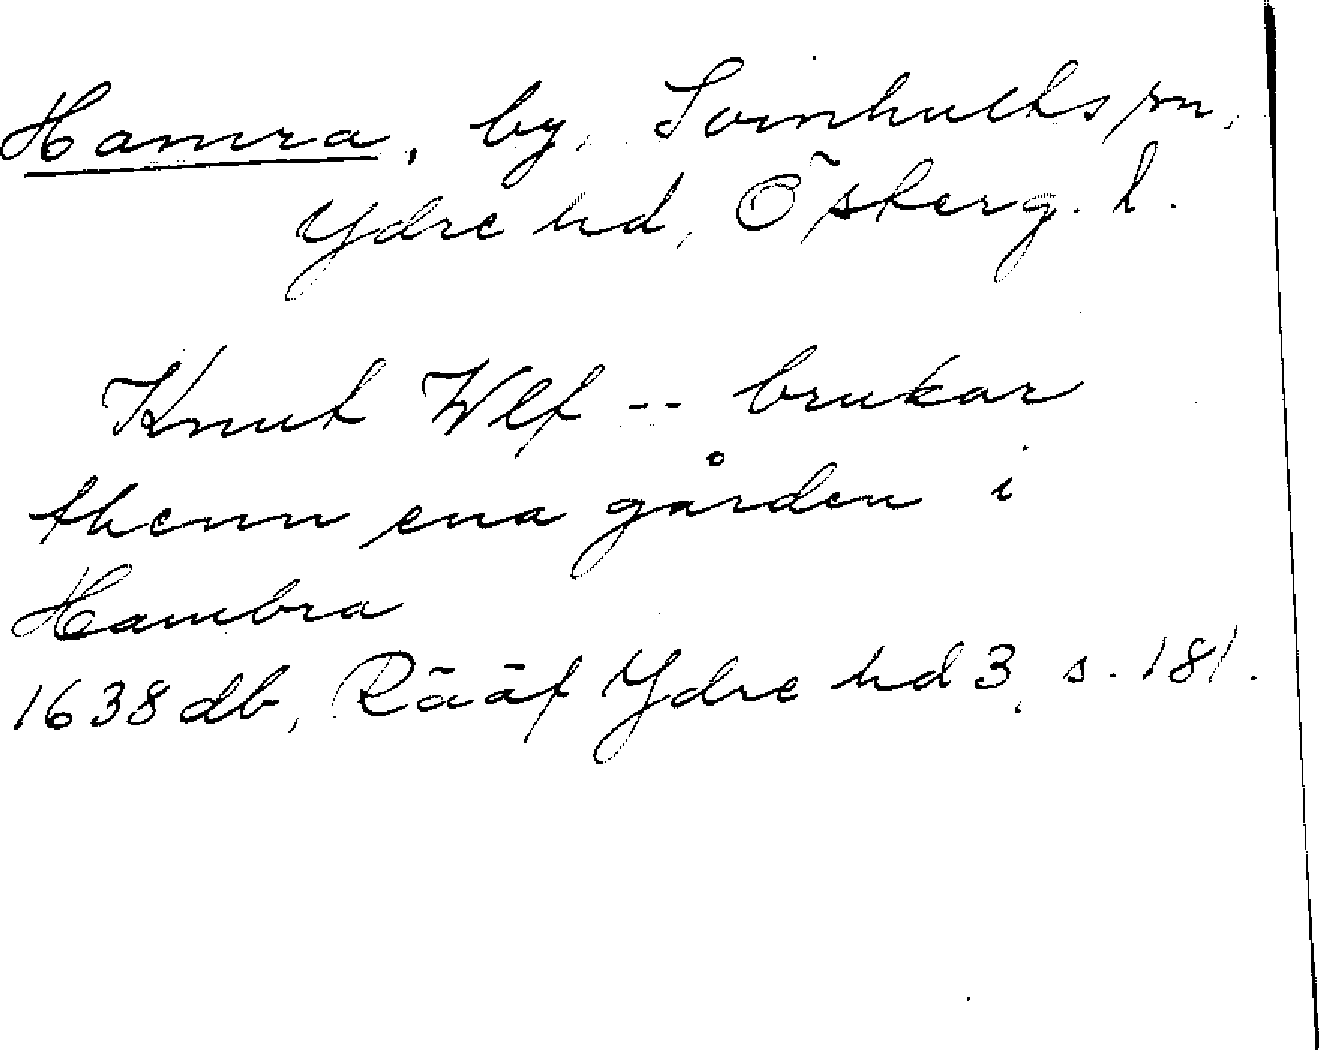 Hamra, by, Svinhults sn,
Ydre hd, Östergl.
Knut Wlf -- brukar
thenn ena gården i
Hambra
1638 db, Rääf Ydre hd 3, s. 181.